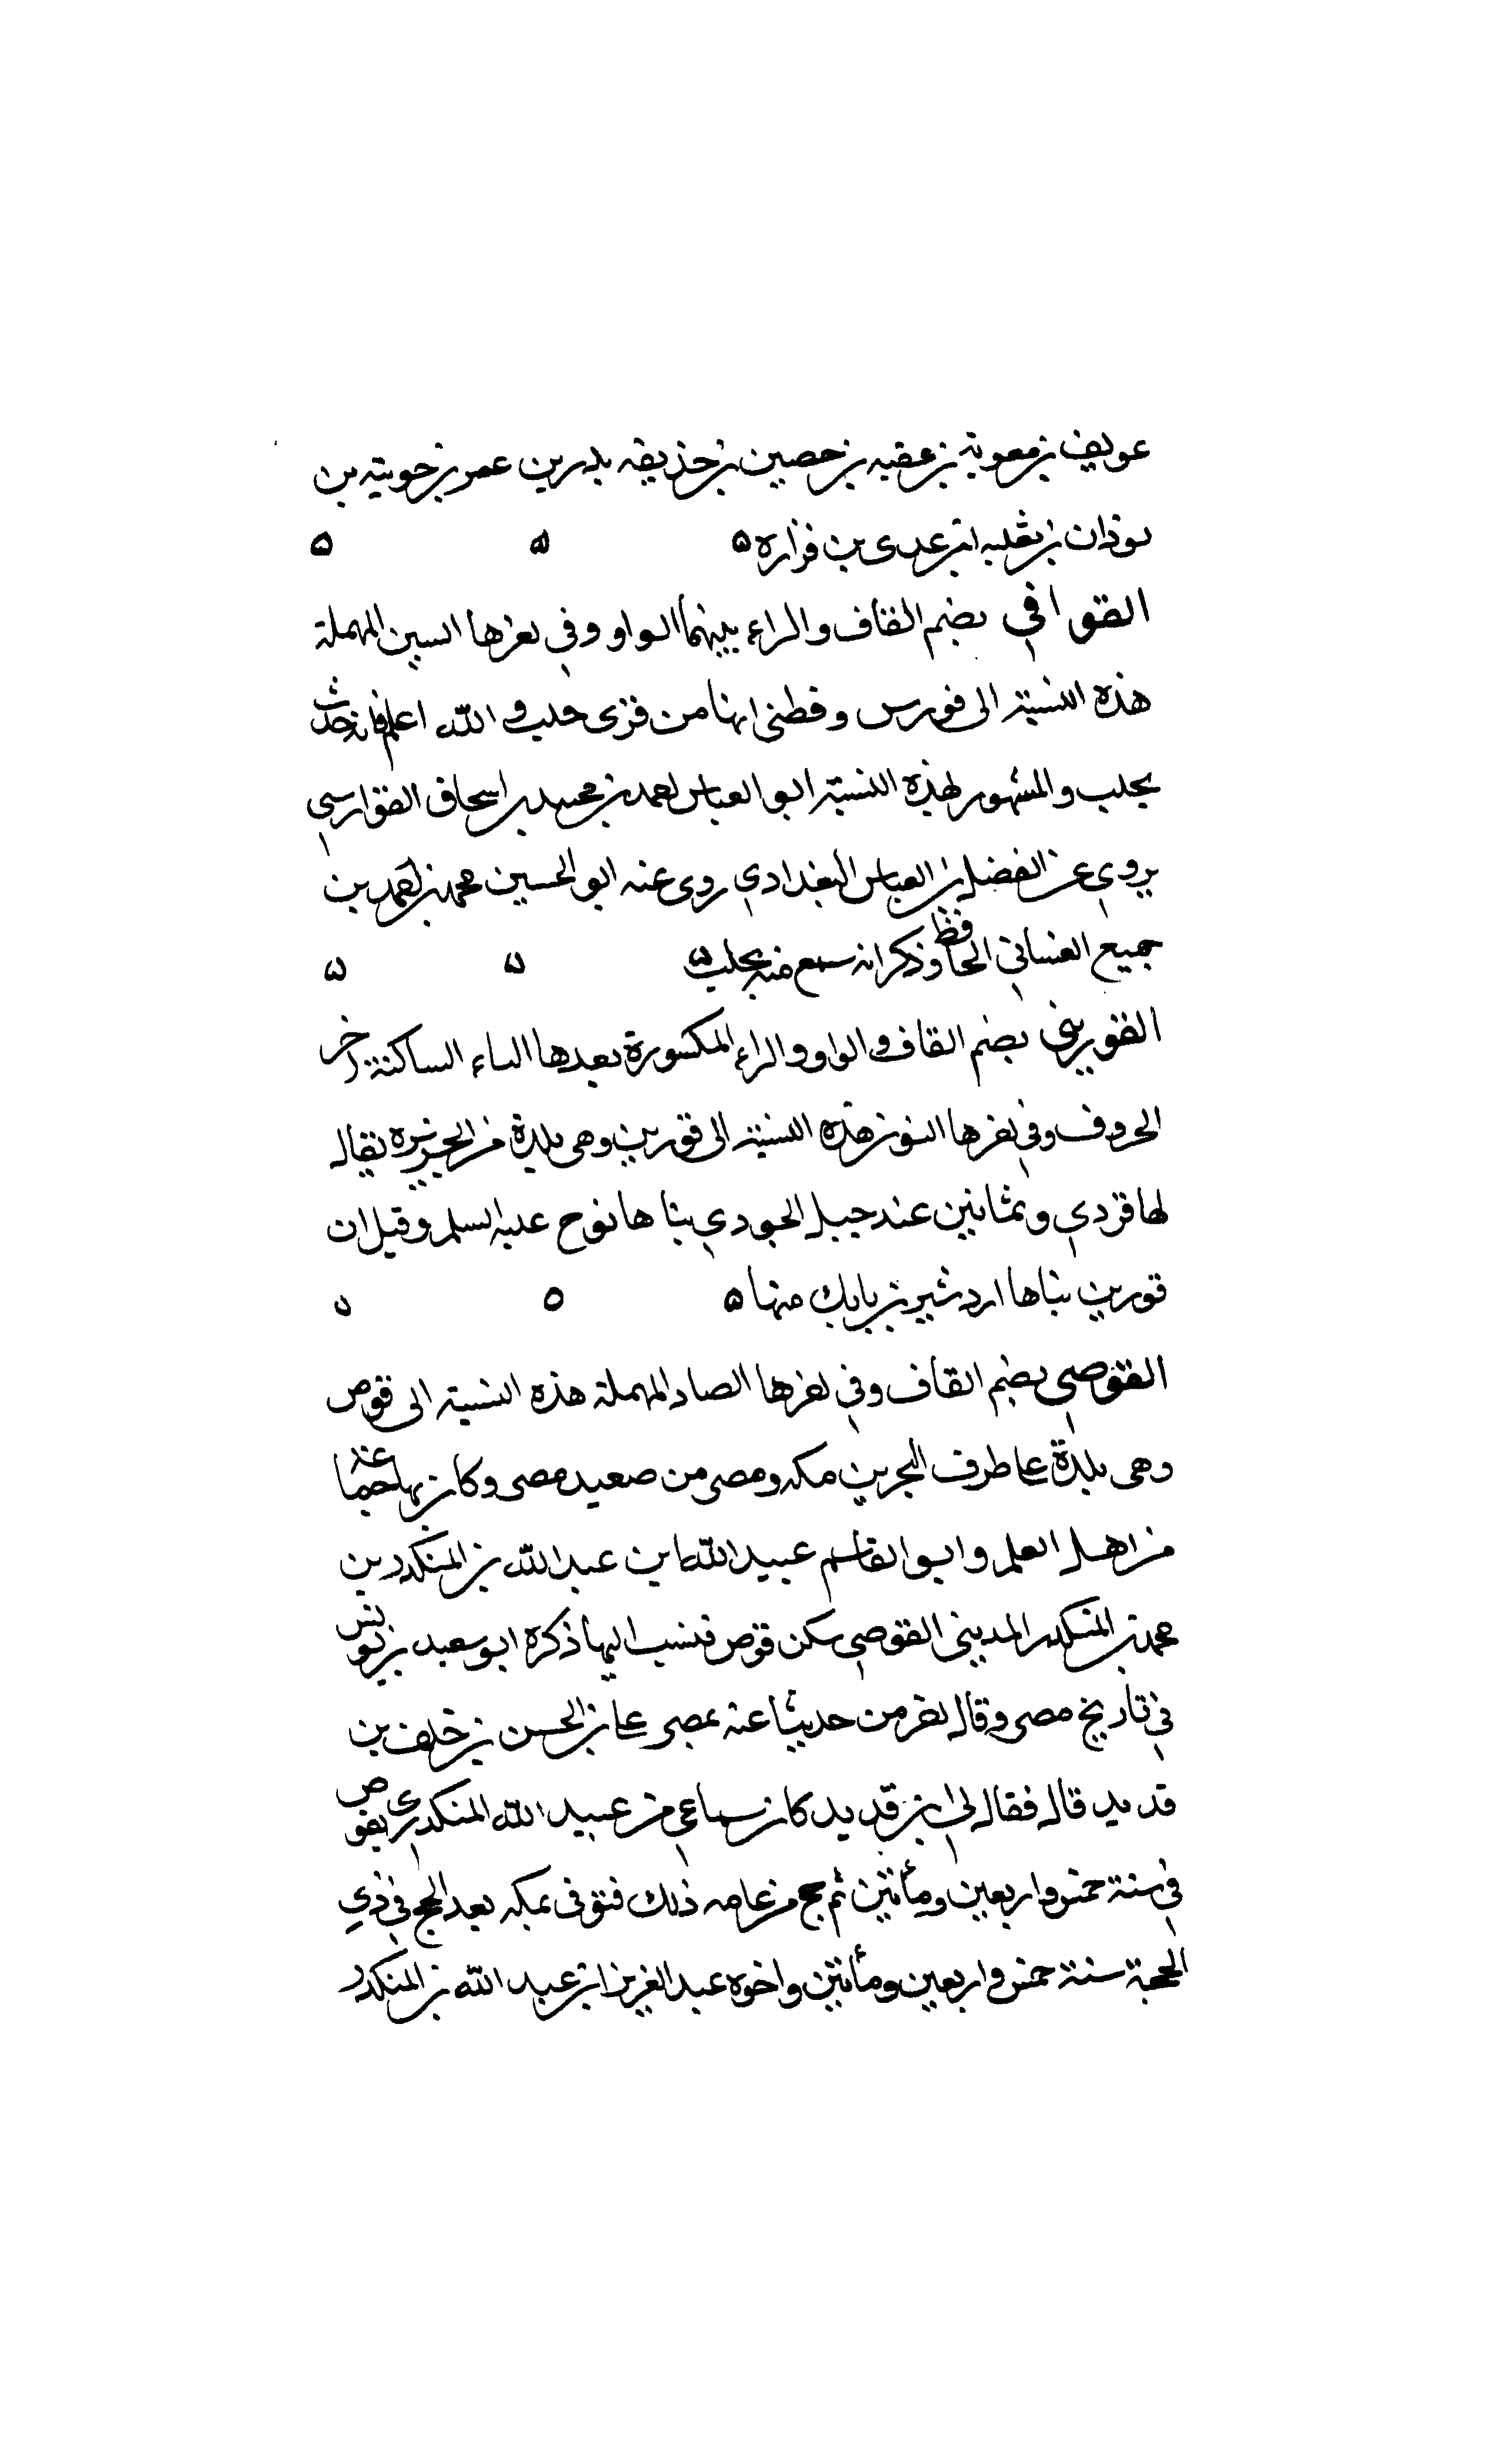 عويف بن معوية بن عقبه بن حصين بن حذيفه بدر بن عمر بن جويته بن
لوذان بن ثعلبه ابن عدى بن فزاره ه ه ه
القوافي بضم القاف والراء بينهما الواو وفي اخرها السين المهملة
هذه النسبة الى قورس وظنى انها من قرى حلب والله اعلم فانه حدث
بحلب والمشهور بهذه النسبة ابو العباس احمد بن محمد بن اسحاق القوارسي
يروي عن الفضل بن العباس البغدادي روى عنه ابو الحسين محمد بن احمد بن
جميع الغساني الحافظ وذكر انه سمع منه بحلب ه ه ه
القوريني بضم القاف والواو والراء المكسورة بعدها الياء الساكنة اخر
الحروف وفي اخرها النون هذه النسبة الى قورين وهى بلدة من الجزيره يقال
لها قردي وثمانين عند جبل الجودي بناها نوح عليه السلم وقيل ان
قورين بناها اردشير بن بابك منها ه ه ه
القوصي بضم القاف وفي اخرها الصاد المهملة هذه النسبة الى قوص
وهى بلدة على طرف البحر بين مكه ومصر من صعيد مصر وكان بها جماعة
من اهل العلم وابو القاسم عبيد الله بن عبد الله بن المنكدر بن
محمد بن المنكدر المديني القوصي سكن قوص فنسب اليها ذكره ابو سعيد بن يونس
في تاريخ مصر وقال اخر من حدثنا عنه بمصر على بن الحسن بن خلف بن
قديد قال فقال لي ابن قديد كان سماعي من عبيد الله المنكدري بقوص
في سنة خمس واربعين ومأتين ثم حج من عامه ذلك فتوفى بمكه بعد الحج في ذي
الحجة سنة خمس واربعين ومأتين واخوه عبد العزيز ابن عبد الله بن المنكدر